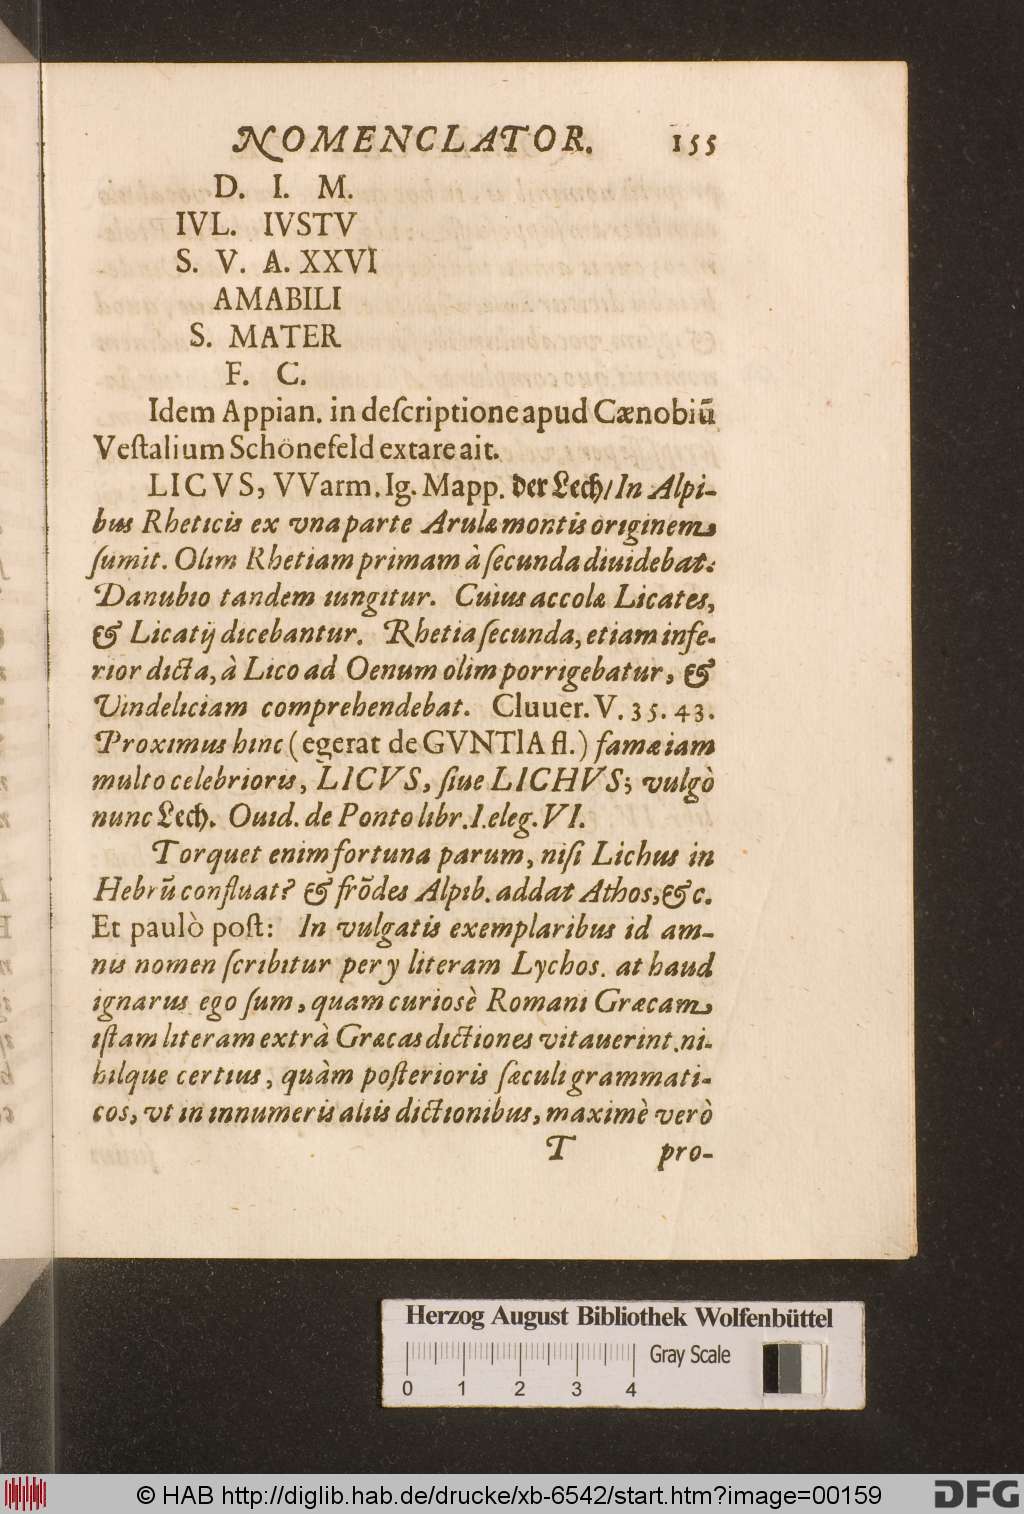 NOMENCLATOR. 155
D. I. M.
IVL. IVSTV
S. V. A. XXVI
AMABILI
S. MATER
F. C.
Idem Appian. in deſcriptione apud Cænobiū
Veſtalium Schönefeld extare ait.
LICVS, VVarm. Ig. Mapp. der Lech/ In Alpi-
bus Rheticis ex vna parte Arulæ montis originem
ſumit. Olim Rhetiam primam à ſecunda diuidebat.
Danubio tandem iungitur. Cuius accolæ Licates,
& Licatij dicebantur. Rhetia ſecunda, etiam infe-
rior dicta, à Lico ad Oenum olim porrigebatur, &
Vindeliciam comprehendebat. Cluuer. V. 35. 43.
Proximus hinc (egerat de GVNTIA fl.) famæ iam
multo celebrioris, LICVS, ſiue LICHVS; vulgò
nunc Lech. Ouid. de Ponto libr. I. eleg. VI.
Torquet enim fortuna parum, niſi Lichus in
Hebrū confluat? & frōdes Alpib. addat Athos, &c.
Et paulò poſt: In vulgatis exemplaribus id am-
nis nomen ſcribitur per y literam Lychos. at haud
ignarus ego ſum, quam curiosè Romani Græcam
iſtam literam extrà Græcas dictiones vitauerint. ni-
hilque certius, quàm poſterioris ſæculi grammati-
cos, vt in innumeris aliis dictionibus, maximè verò
T pro-
Herzog August Bibliothek Wolfenbüttel
Gray Scale
0 1 2 3 4
© HAB http://diglib.hab.de/drucke/xb-6542/start.htm?image=00159
DFG